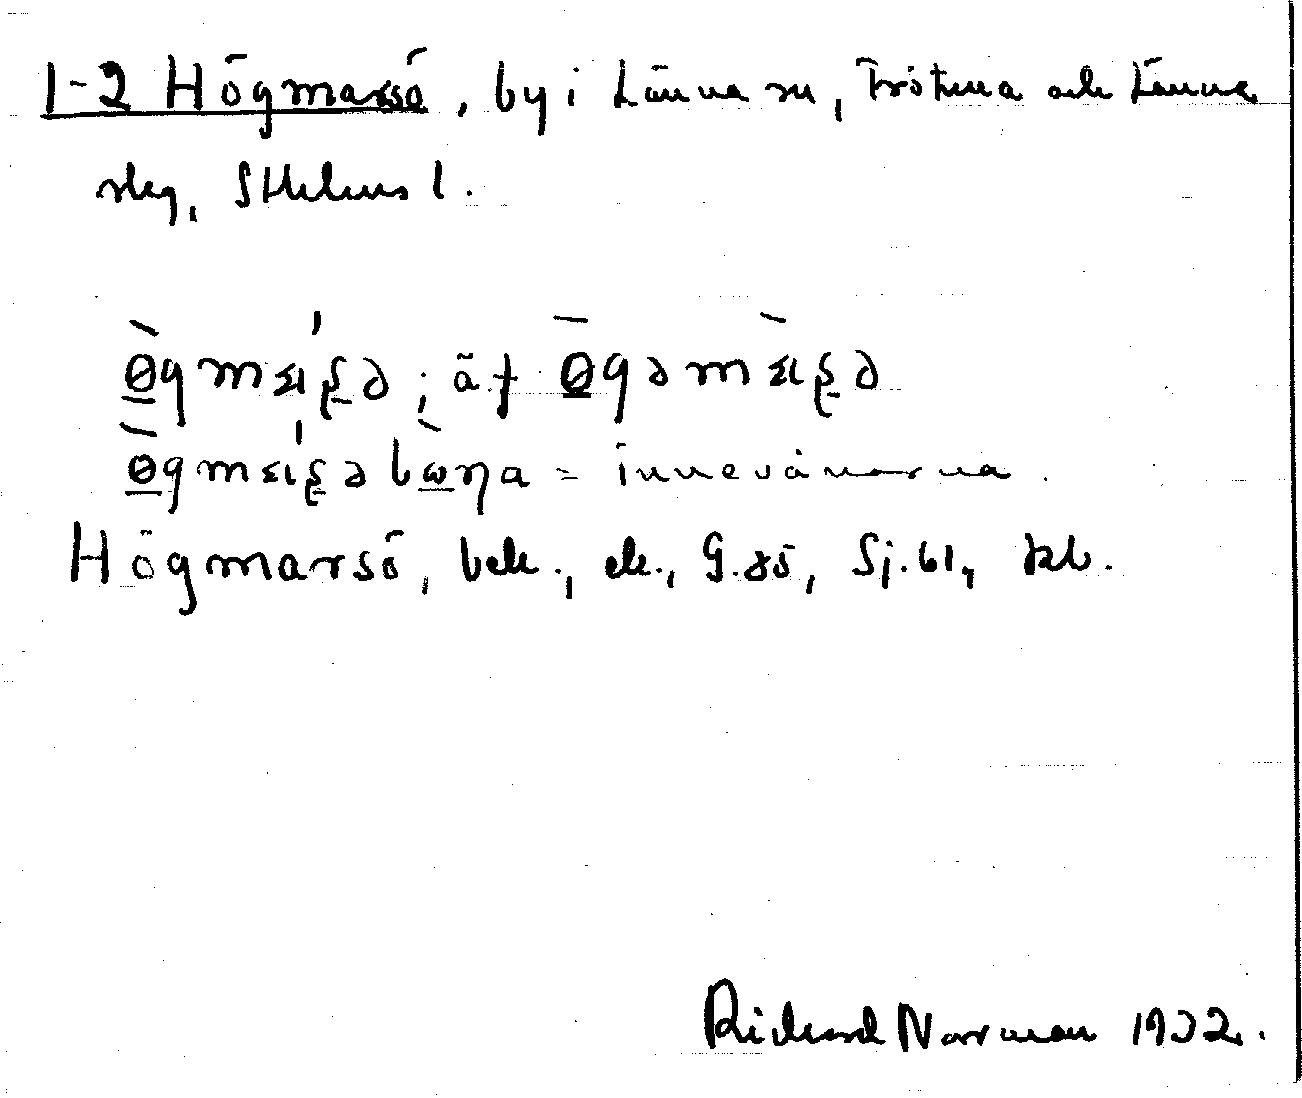 1-2 Högmarsö, by i Länna sn, Frötuna och Länna
slag, Sthlms l.
ø̀gmaʂə; ä. f. ø̀gəmàʂə
ø̀gmaʂəbὼŋa = innevånarna.
Högmarsö, bek., ek., G.85, Sj.61, jkb.
Rickard Norrman 1932.